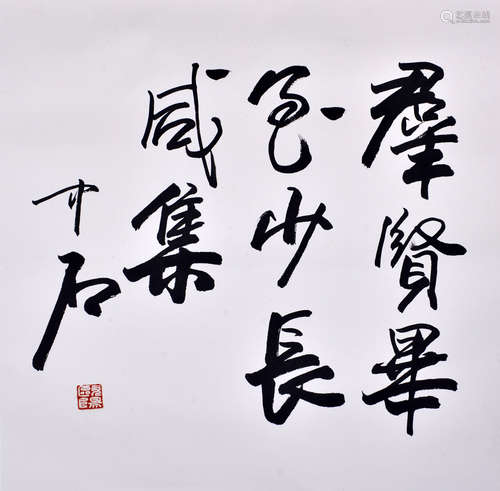 羣賢畢
至少長
咸集
中石